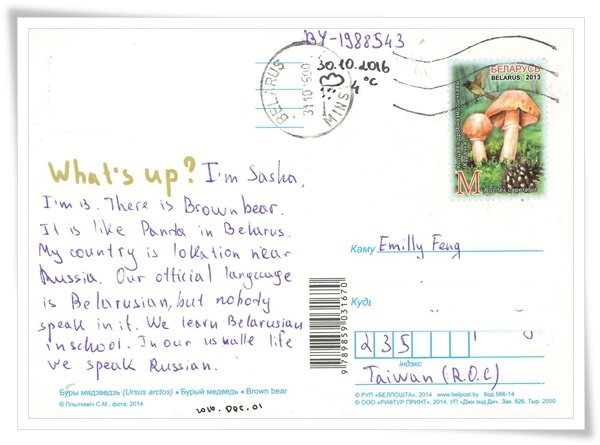 BY-1988543
30.10.2016
4 °C
BELARUS
31.10 1500
MINS
БЕЛАРУСЬ
BELARUS 2013
M
Rozites caperatus
What's up? I'm Sasha,
I'm 13. There is Brown bear.
It is like Panda in Belarus.
My country is lokation near
Russia. Our official language
is Belarusian, but nobody
speak in it. We learn Belarusian
in school. In our usualle life
we speak Russian.
Каму Emilly Feng
Куды
235
індэкс
Taiwan (R.O.C)
9789859031670
Буры мядзведзь (Ursus arctos) • Бурый медведь • Brown bear
© Плыткевіч С.М., фота, 2014
2016. DEC. 01
© РУП «БЕЛПОШТА», 2014 www.belpost.by Код 566-14
© ООО «РИФТУР ПРИНТ», 2014. УП «Джи энд Ди». Зак. 826. Тыр. 2000